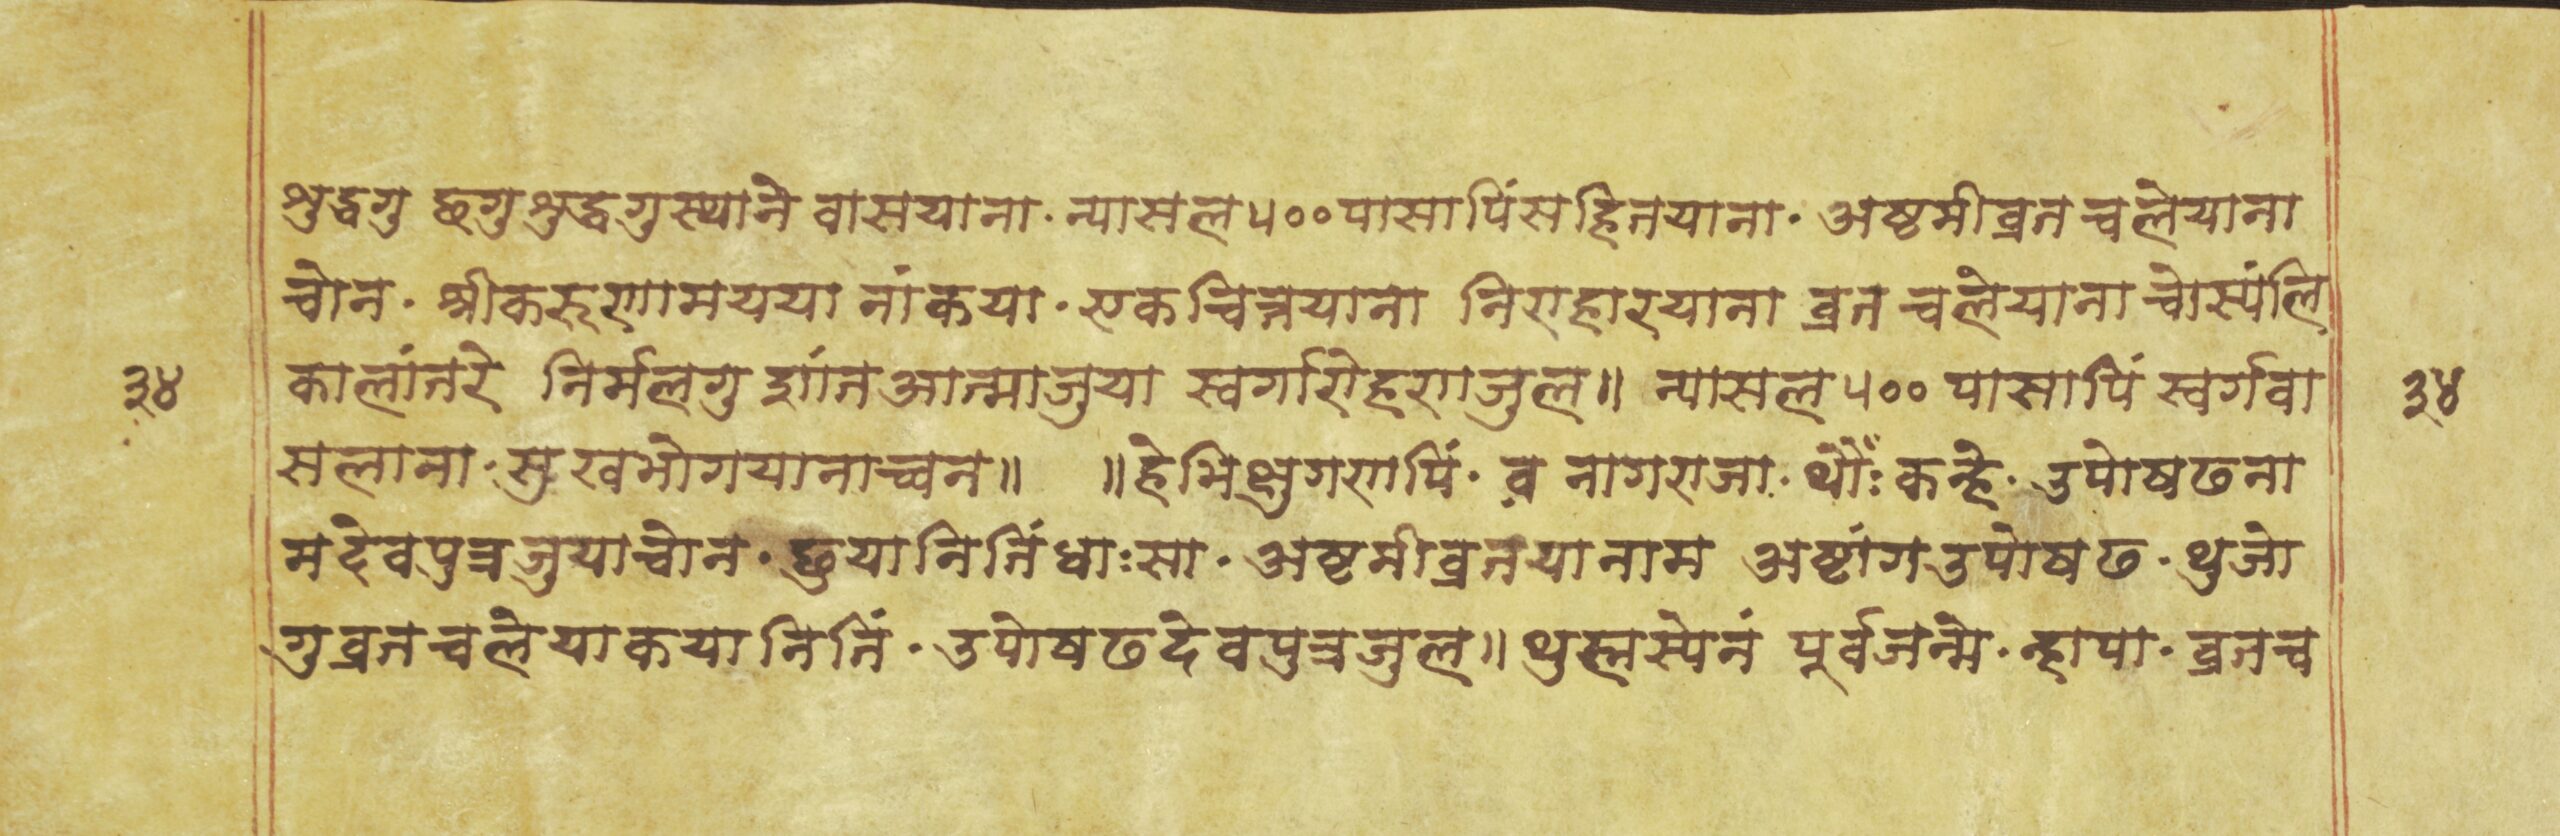 शुद्धगु छगुशुद्धगुस्थाने वासयाना· न्यासल५००पासापिंसहितयाना· अष्ठमीव्रतचलेयाना
चोन· श्रीकरूणामयया नांकया· एकचित्तयाना निराहारयाना व्रतचलेयानाचोस्यंलि
३४
कालांतरे निर्मलगु शांतआत्माजुया स्वर्गारोहणजुल॥ न्यासल५०० पासापिं स्वर्गवा
३४
सलाना·सुखभोगयानाच्वन॥ ॥हेभिक्षुगणपिं· व नागराजा· थौंः कन्हे· उपोषढना
मदेवपुत्रजुयाचोन· छुयानितिंधाःसा· अष्टमीव्रतयानाम अष्टांगउपोषढ· थुजो
गुव्रतचलेयाकयानितिं· उपोषढदेवपुत्रजुल॥ थुह्मस्येनं पूर्वजन्मे· न्हापा· व्रतच